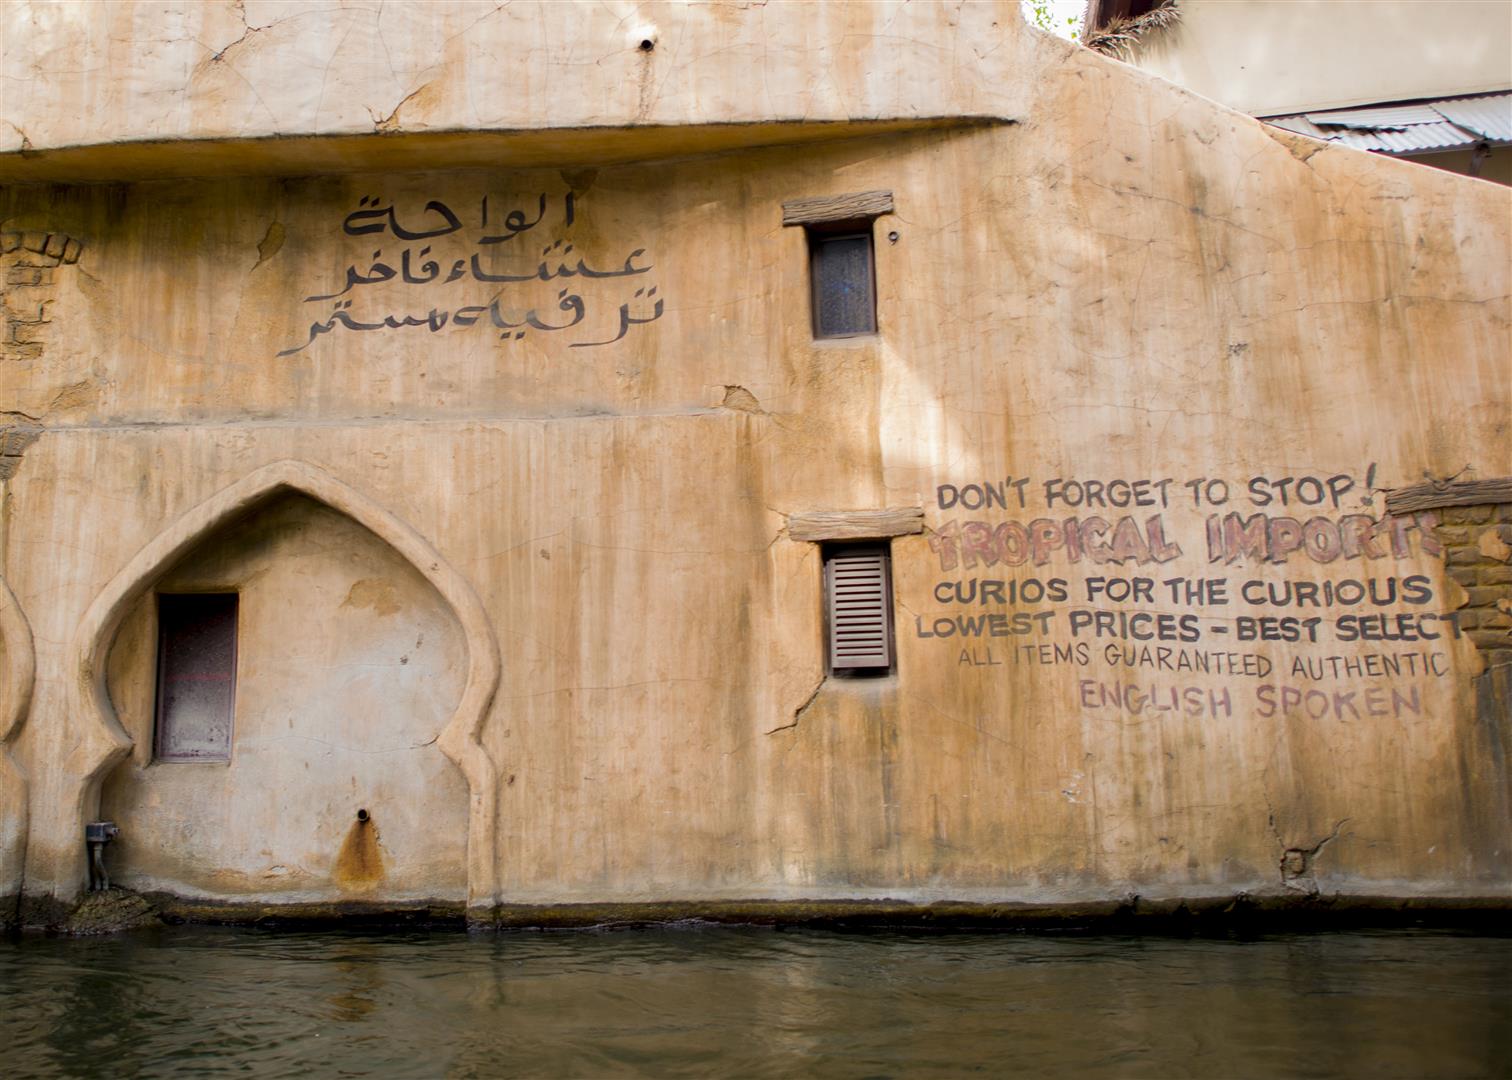 الواحة
عشاء فاخر
ترفيه مستمر
DON'T FORGET TO STOP!
TROPICAL IMPORTS
CURIOS FOR THE CURIOUS
LOWEST PRICES - BEST SELECT
ALL ITEMS GUARANTEED AUTHENTIC
ENGLISH SPOKEN